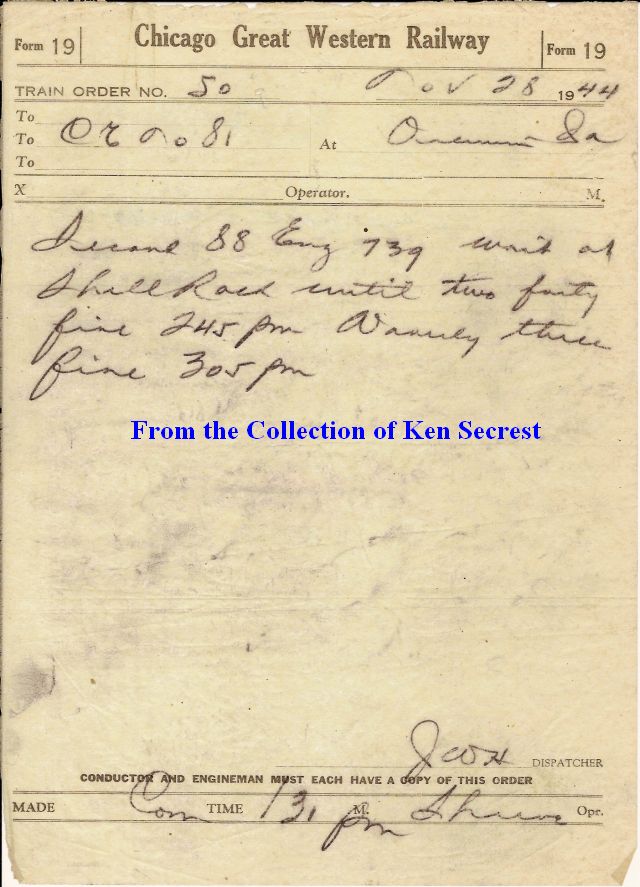 Form 19 Chicago Great Western Railway Form 19
TRAIN ORDER NO. 50 Nov 28 1944
To
To C&E No 81 At Oelwein Ia
To
X Operator. M.
Second 88 Eng 739 wait at
Shell Rock until two forty
five 245 pm Waverly three
five 305 pm
From the Collection of Ken Secrest
JWH DISPATCHER
CONDUCTOR AND ENGINEMAN MUST EACH HAVE A COPY OF THIS ORDER
MADE Com TIME 131 pm M. Opr.